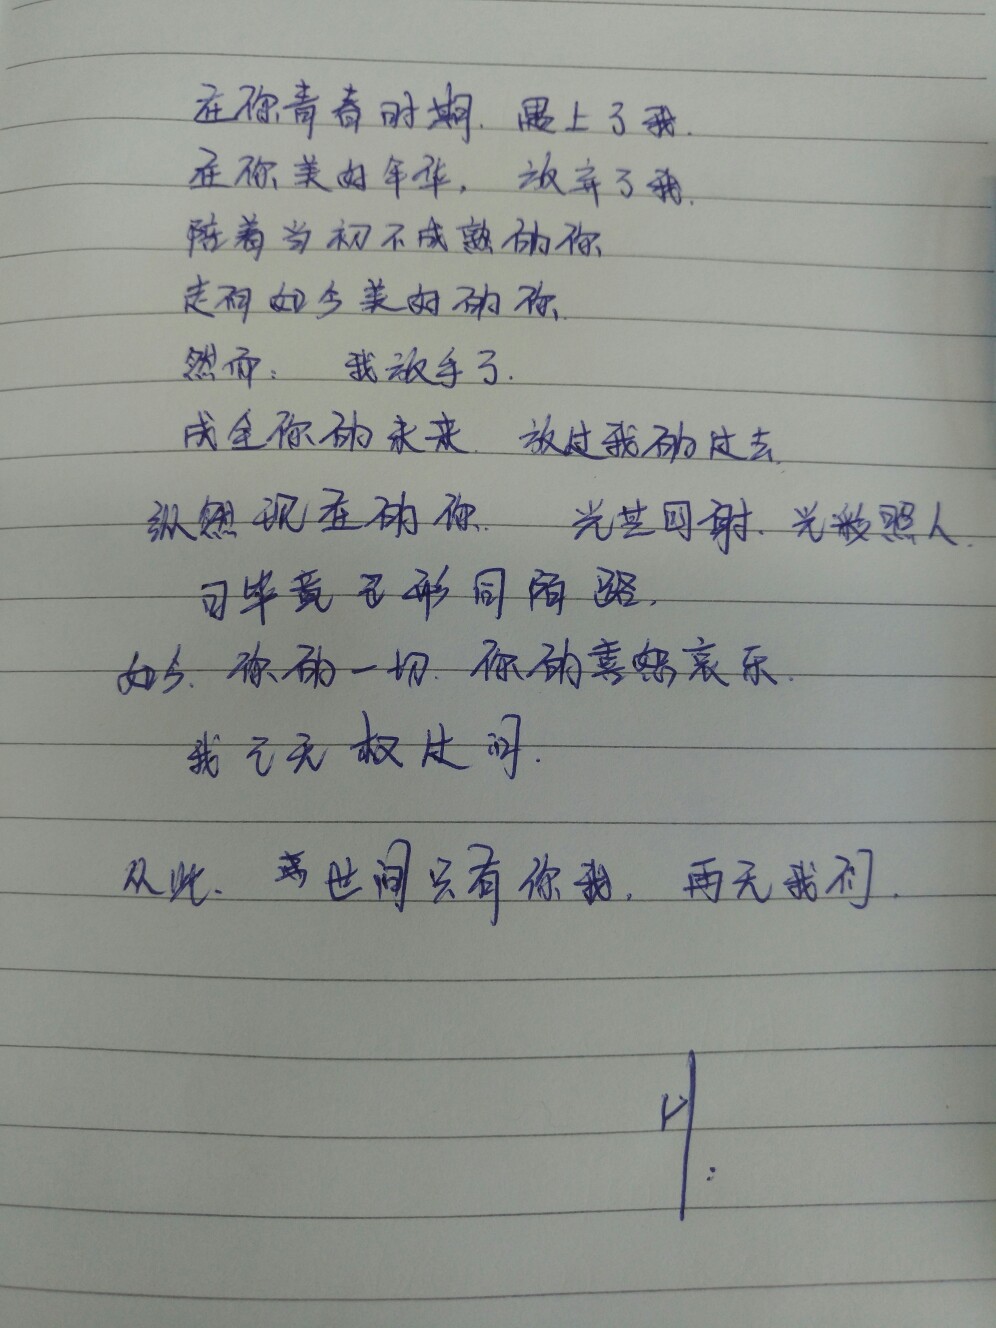 在你青春时期. 遇上了我.
在你美好年华, 放弃了我.
陪着当初不成熟的你
走向如今美好的你.
然而: 我放手了.
成全你的未来. 放过我的过去.
纵然现在的你. 光芒四射. 光彩照人.
可毕竟已形同陌路.
如今. 你的一切. 你的喜怒哀乐.
我已无权过问.
从此. 世间只有你我. 再无我们.